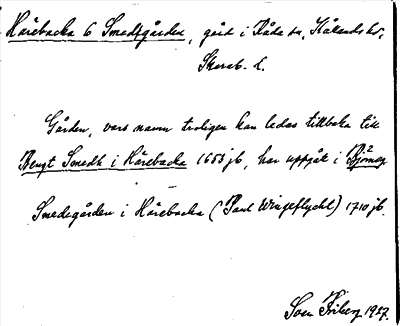 Härebacka 6 Smedsgården, gård i Råda sn, Kållands hd,
Skarab. l.
Gården, vars namn troligen kan ledas tillbaka till
Bengt Smedh i Härebacka 1655 jb, har uppgått i
Smedsgården i Härebacka (Paul Wingeflycht) 1710 jb.
Sven Friberg 1927.